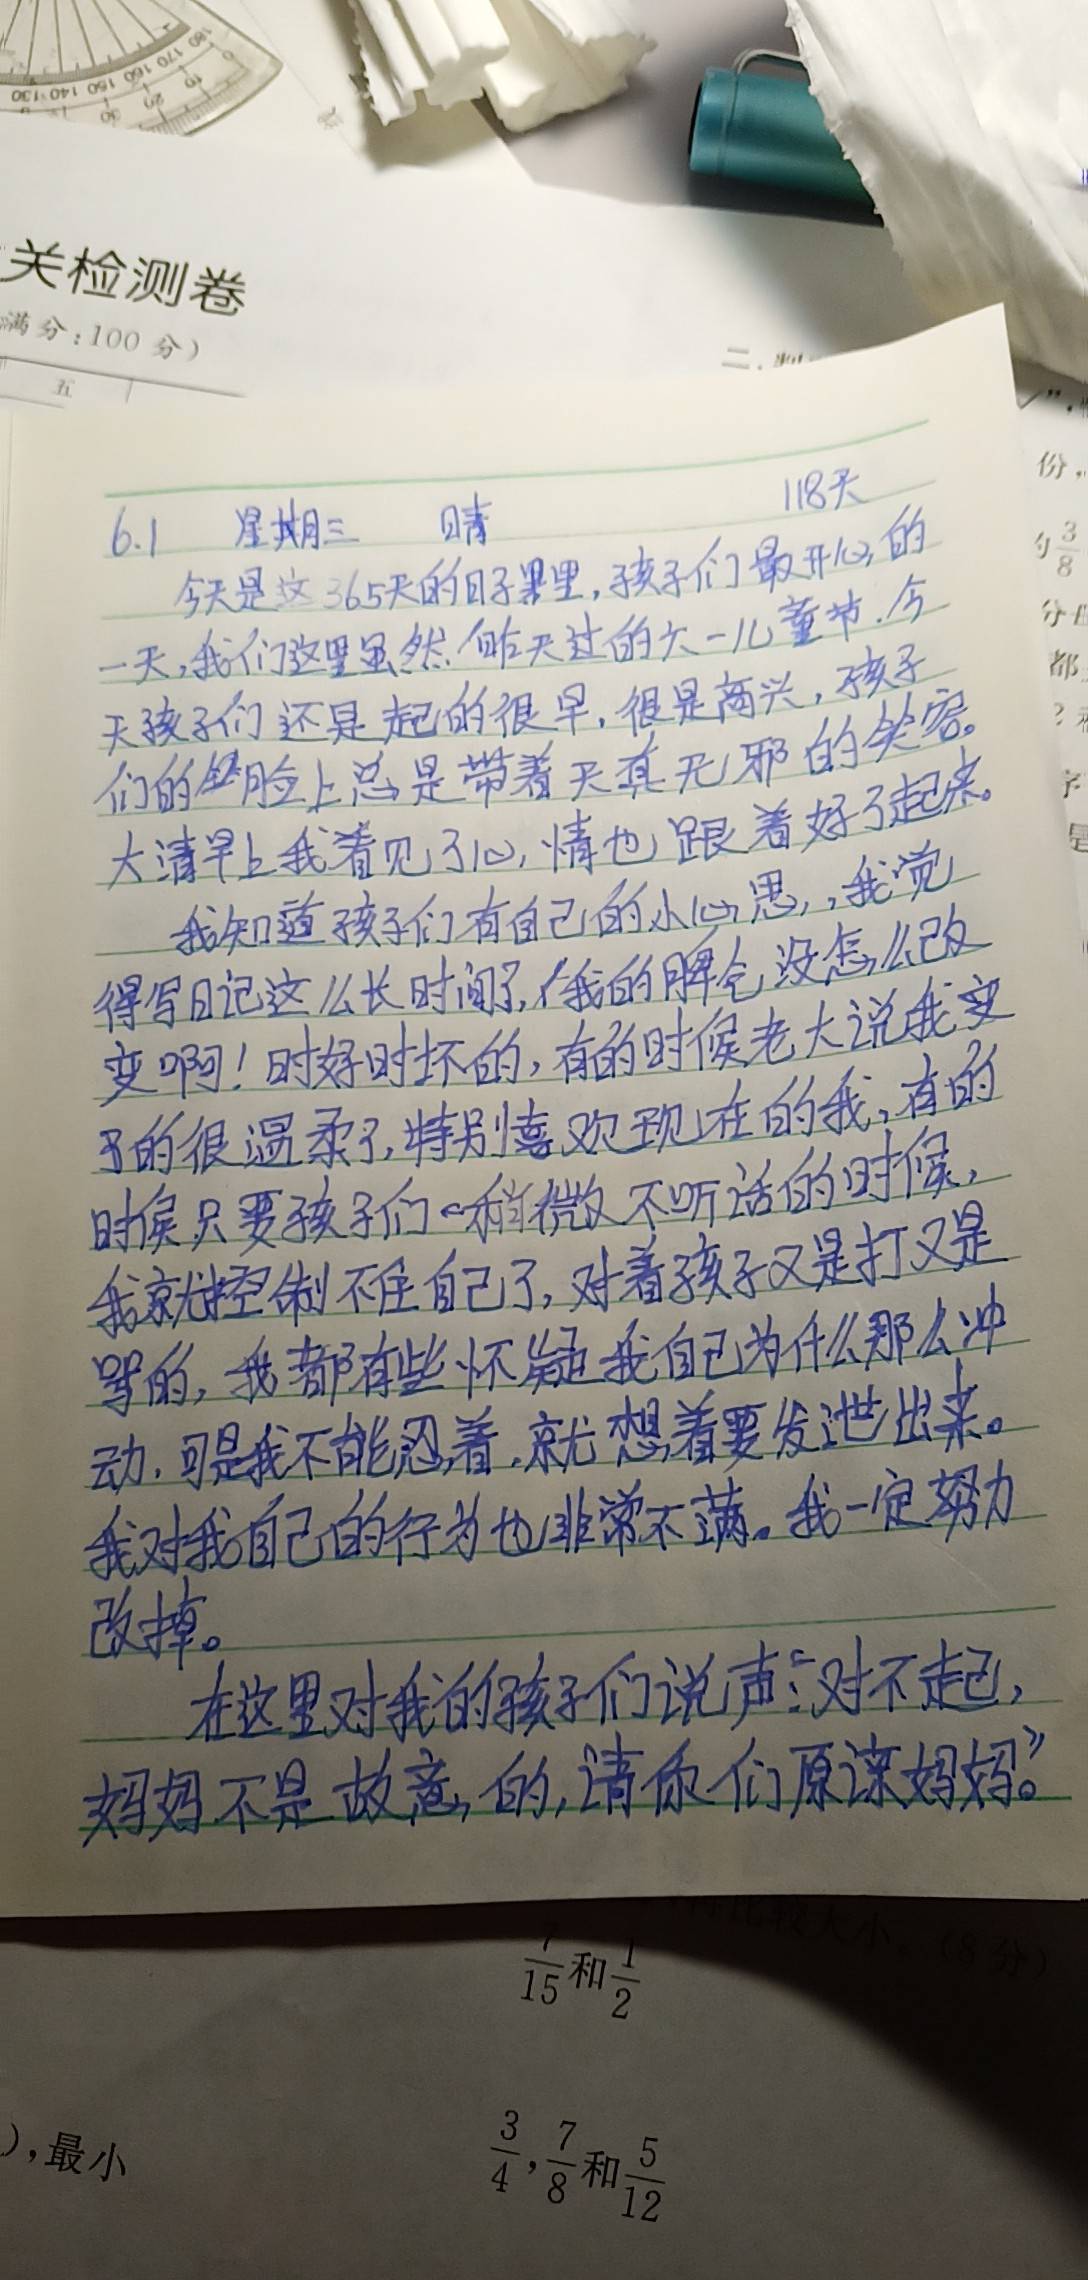 180 170 160 150 140 130
0 10 20 30
关检测卷
满分:100 分)
五
二.
份,
3/8
都
6.1 星期三 晴 118天
今天是这365天的日子里,孩子们最开心的
一天,我们这里虽然昨天过的六一儿童节.今
天孩子们还是起的很早,很是高兴,孩子
们的脸上总是带着天真无邪的笑容。
大清早上我看见了心,情也跟着好了起来。
我知道孩子们有自己的小心思,,我觉
得写日记这么长时间了,我的脾气没怎么改
变啊!时好时坏的,有的时候老大说我变
了的很温柔了,特别喜欢现在的我,有的
时候只要孩子们一稍微不听话的时候,
我就控制不住自己了,对着孩子又是打又是
骂的,我都有些怀疑我自己为什么那么冲
动.可是我不能忍着.就想着要发泄出来。
我对我自己的行为也非常不满。我一定努力
改掉。
在这里对我的孩子们说声:“对不起,
妈妈不是故意的,请你们原谅妈妈。”
比较大小。(8分)
7/15 和 1/2
),最小
3/4,7/8 和 5/12